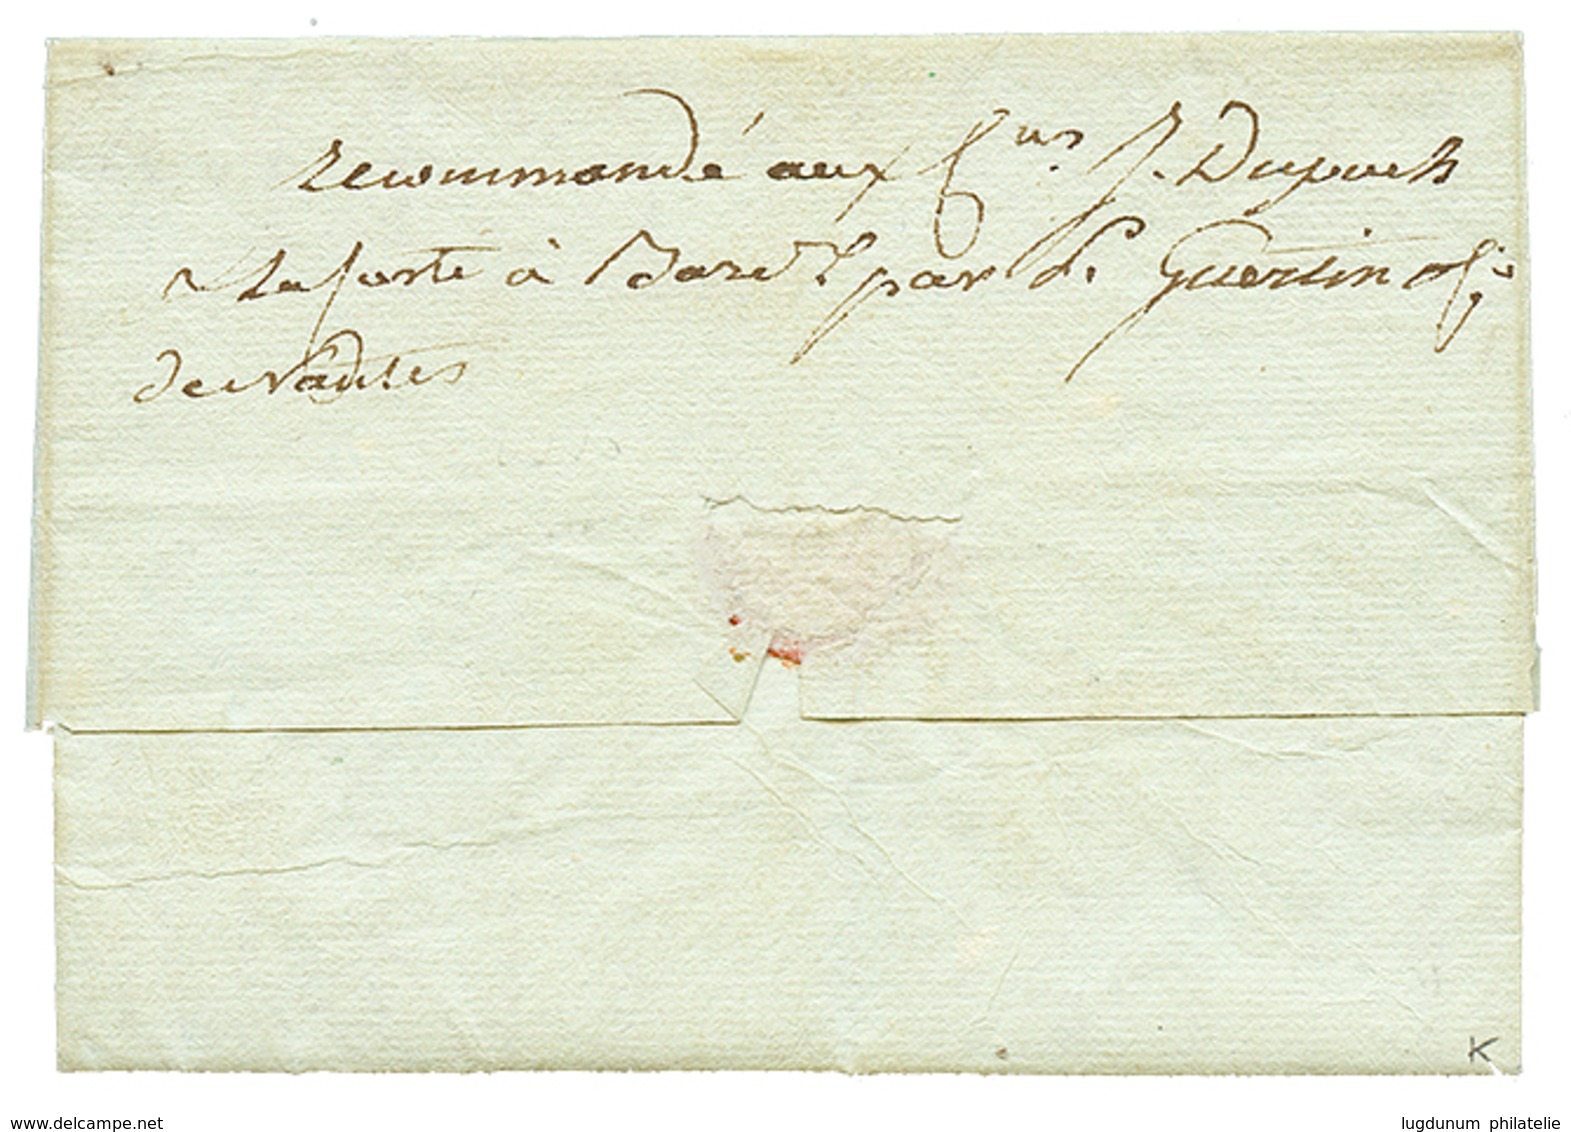 recommandé aux C.ns J. Dupuch
Laforte à Bord.x par J. Guertin off.r
de Nantes
K
www.delcampe.net
lugdunum philatelie